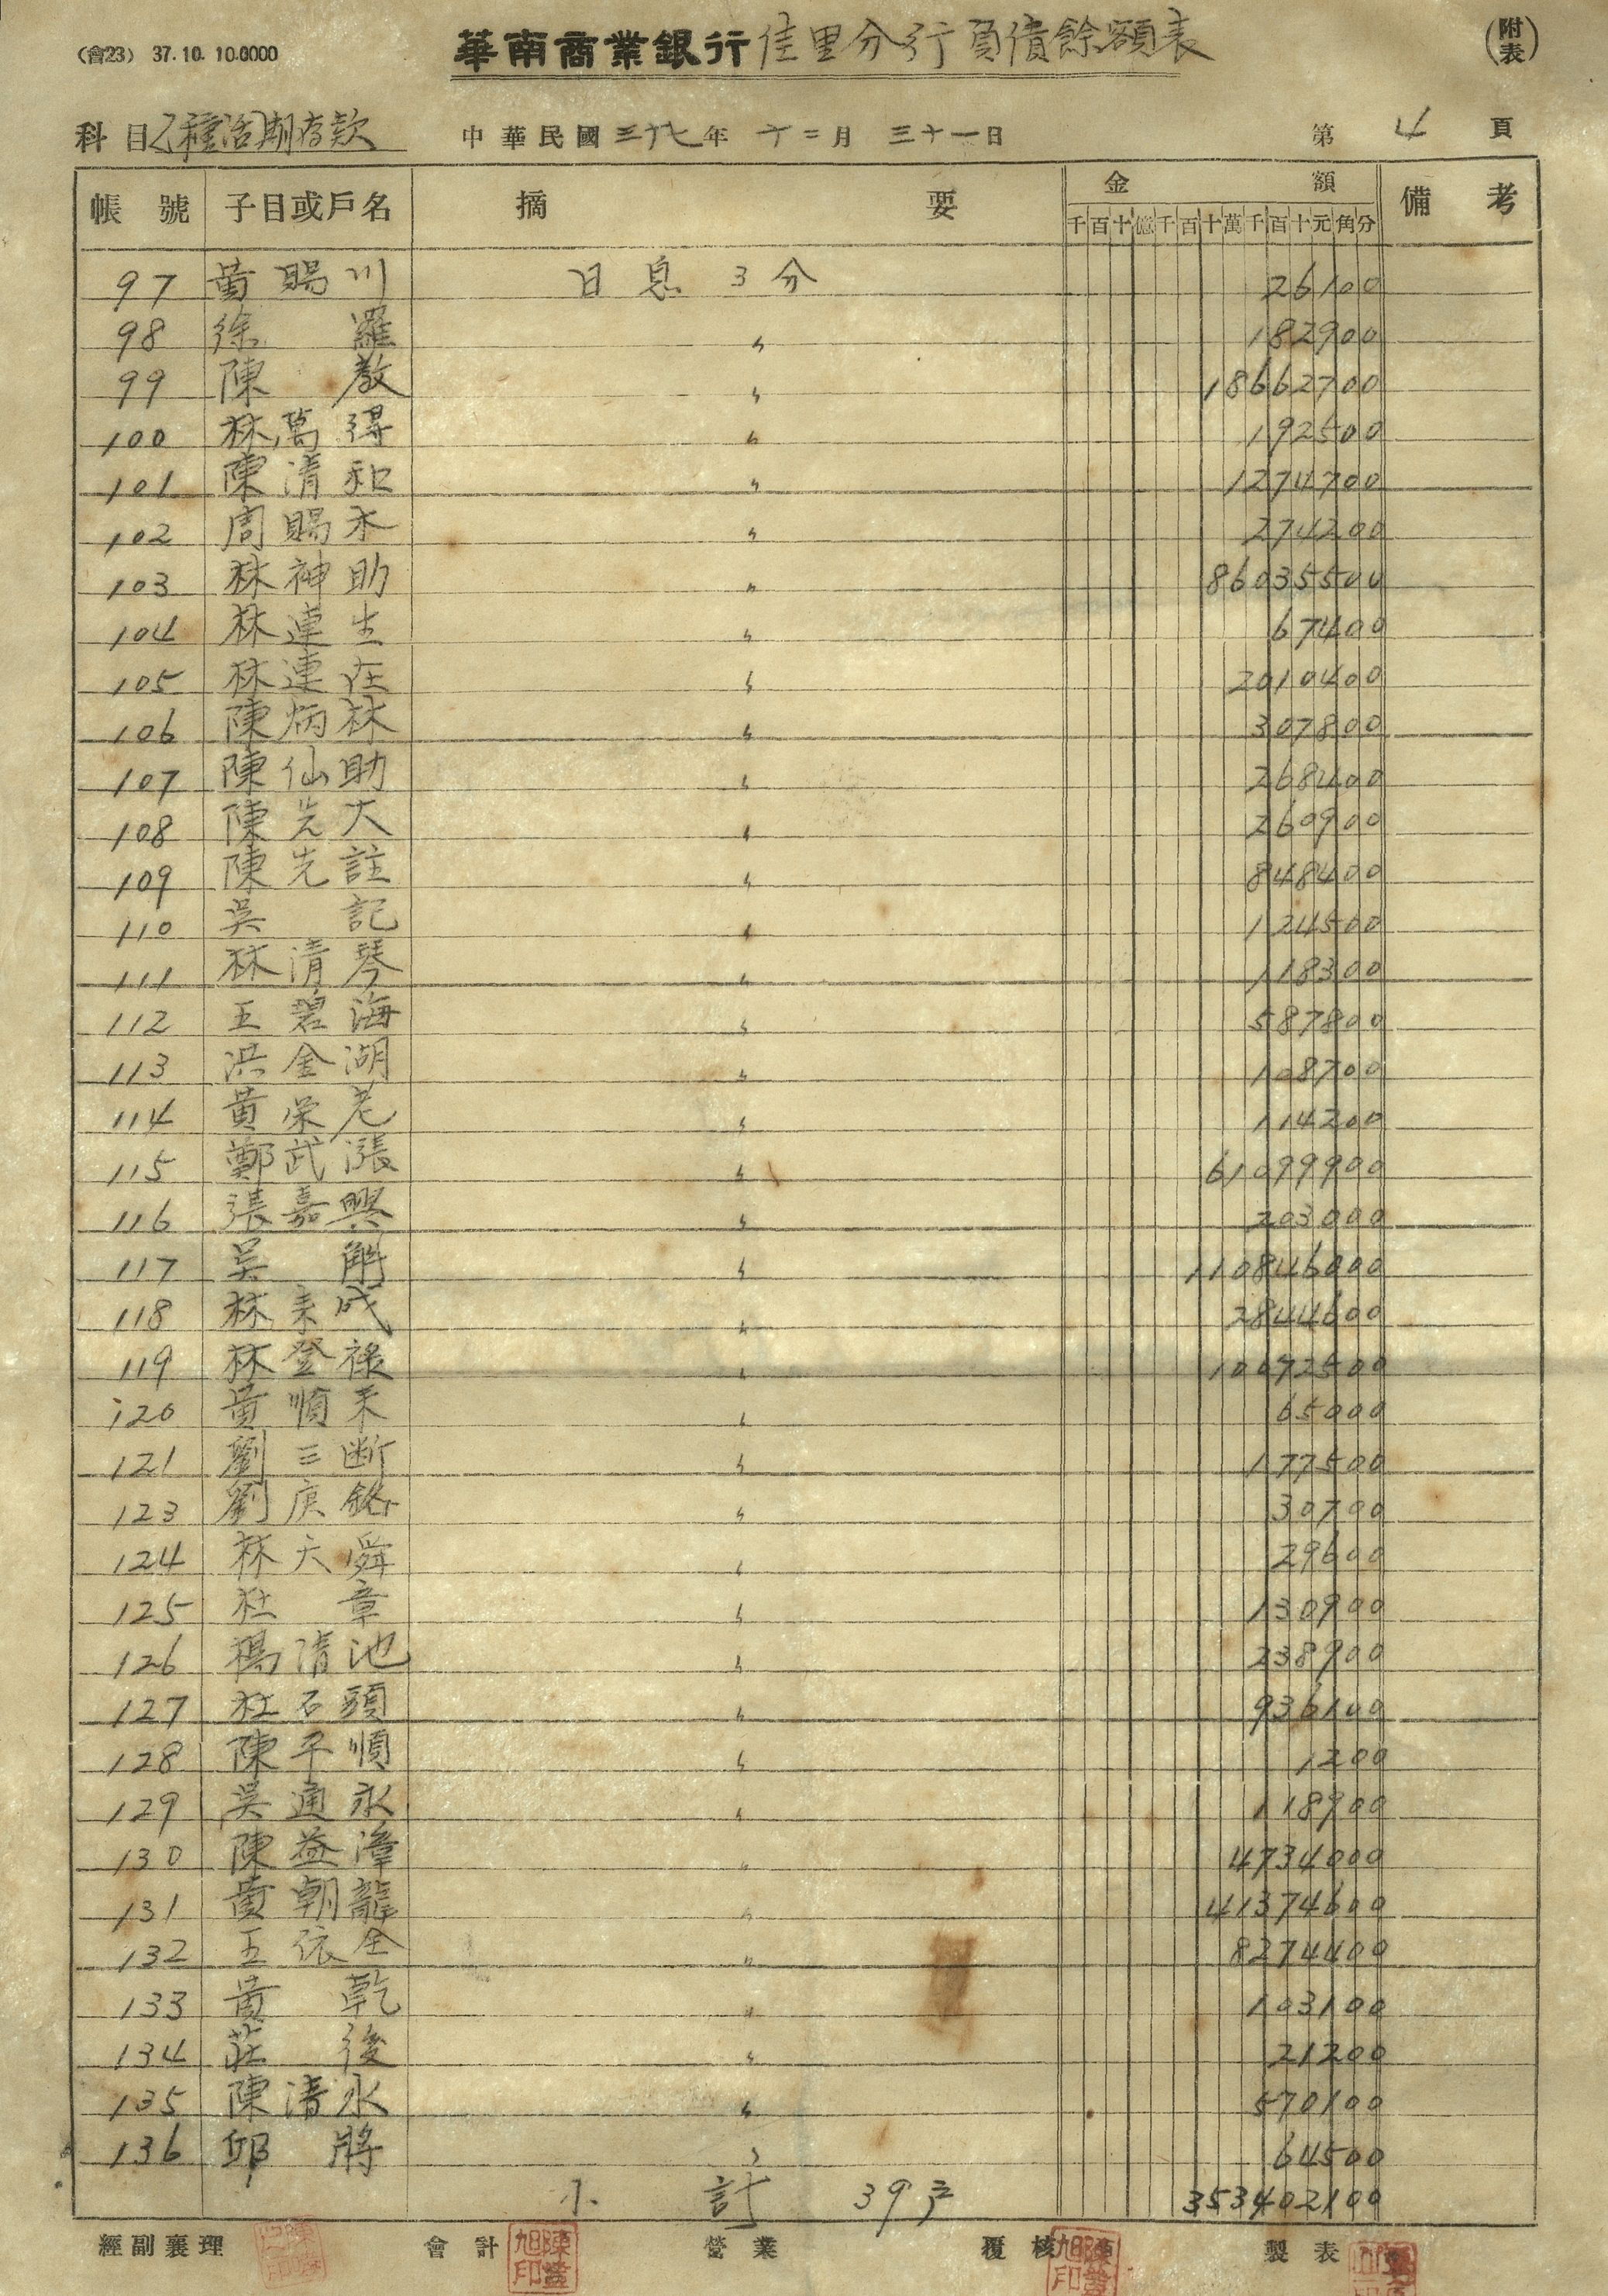 (會23) 37.10.10.0000
華南商業銀行佳里分行負債餘額表
(附表)
科目乙種活期存款 中華民國三十七年十二月三十一日 第4頁
帳號 子目或戶名 摘要 金額 備考
千百十億千百十萬千百十元角分
97 黃賜川 日息3分 26100
98 徐羅 〃 182900
99 陳教 〃 18662700
100 林萬得 〃 192500
101 陳清和 〃 1274700
102 周賜木 〃 274200
103 林神助 〃 86035500
104 林連生 〃 67400
105 林連在 〃 2010400
106 陳炳林 〃 307800
107 陳仙助 〃 268400
108 陳先大 〃 260900
109 陳先註 〃 848400
110 吳記 〃 124500
111 林清琴 〃 118300
112 王碧海 〃 587800
113 洪金湖 〃 108700
114 黃栄老 〃 114200
115 鄭武漲 〃 61099900
116 張嘉興 〃 203000
117 吳斛 〃 110846000
118 林来成 〃 2844600
119 林登祿 〃 10072500
120 黃順来 〃 65000
121 劉三断 〃 177500
123 劉庚銘 〃 30700
124 林天舜 〃 29600
125 杜章 〃 130900
126 楊清池 〃 238900
127 杜石頭 〃 936100
128 陳平順 〃 1200
129 吳通永 〃 118900
130 陳益漳 〃 4734000
131 黃朝龍 〃 41374600
132 王依全 〃 8274400
133 黃乾 〃 103100
134 莊後 〃 21200
135 陳清水 〃 570100
136 邱將 〃 64500
小計 39戶 353402100
經副襄理 會計 營業 覆核 製表